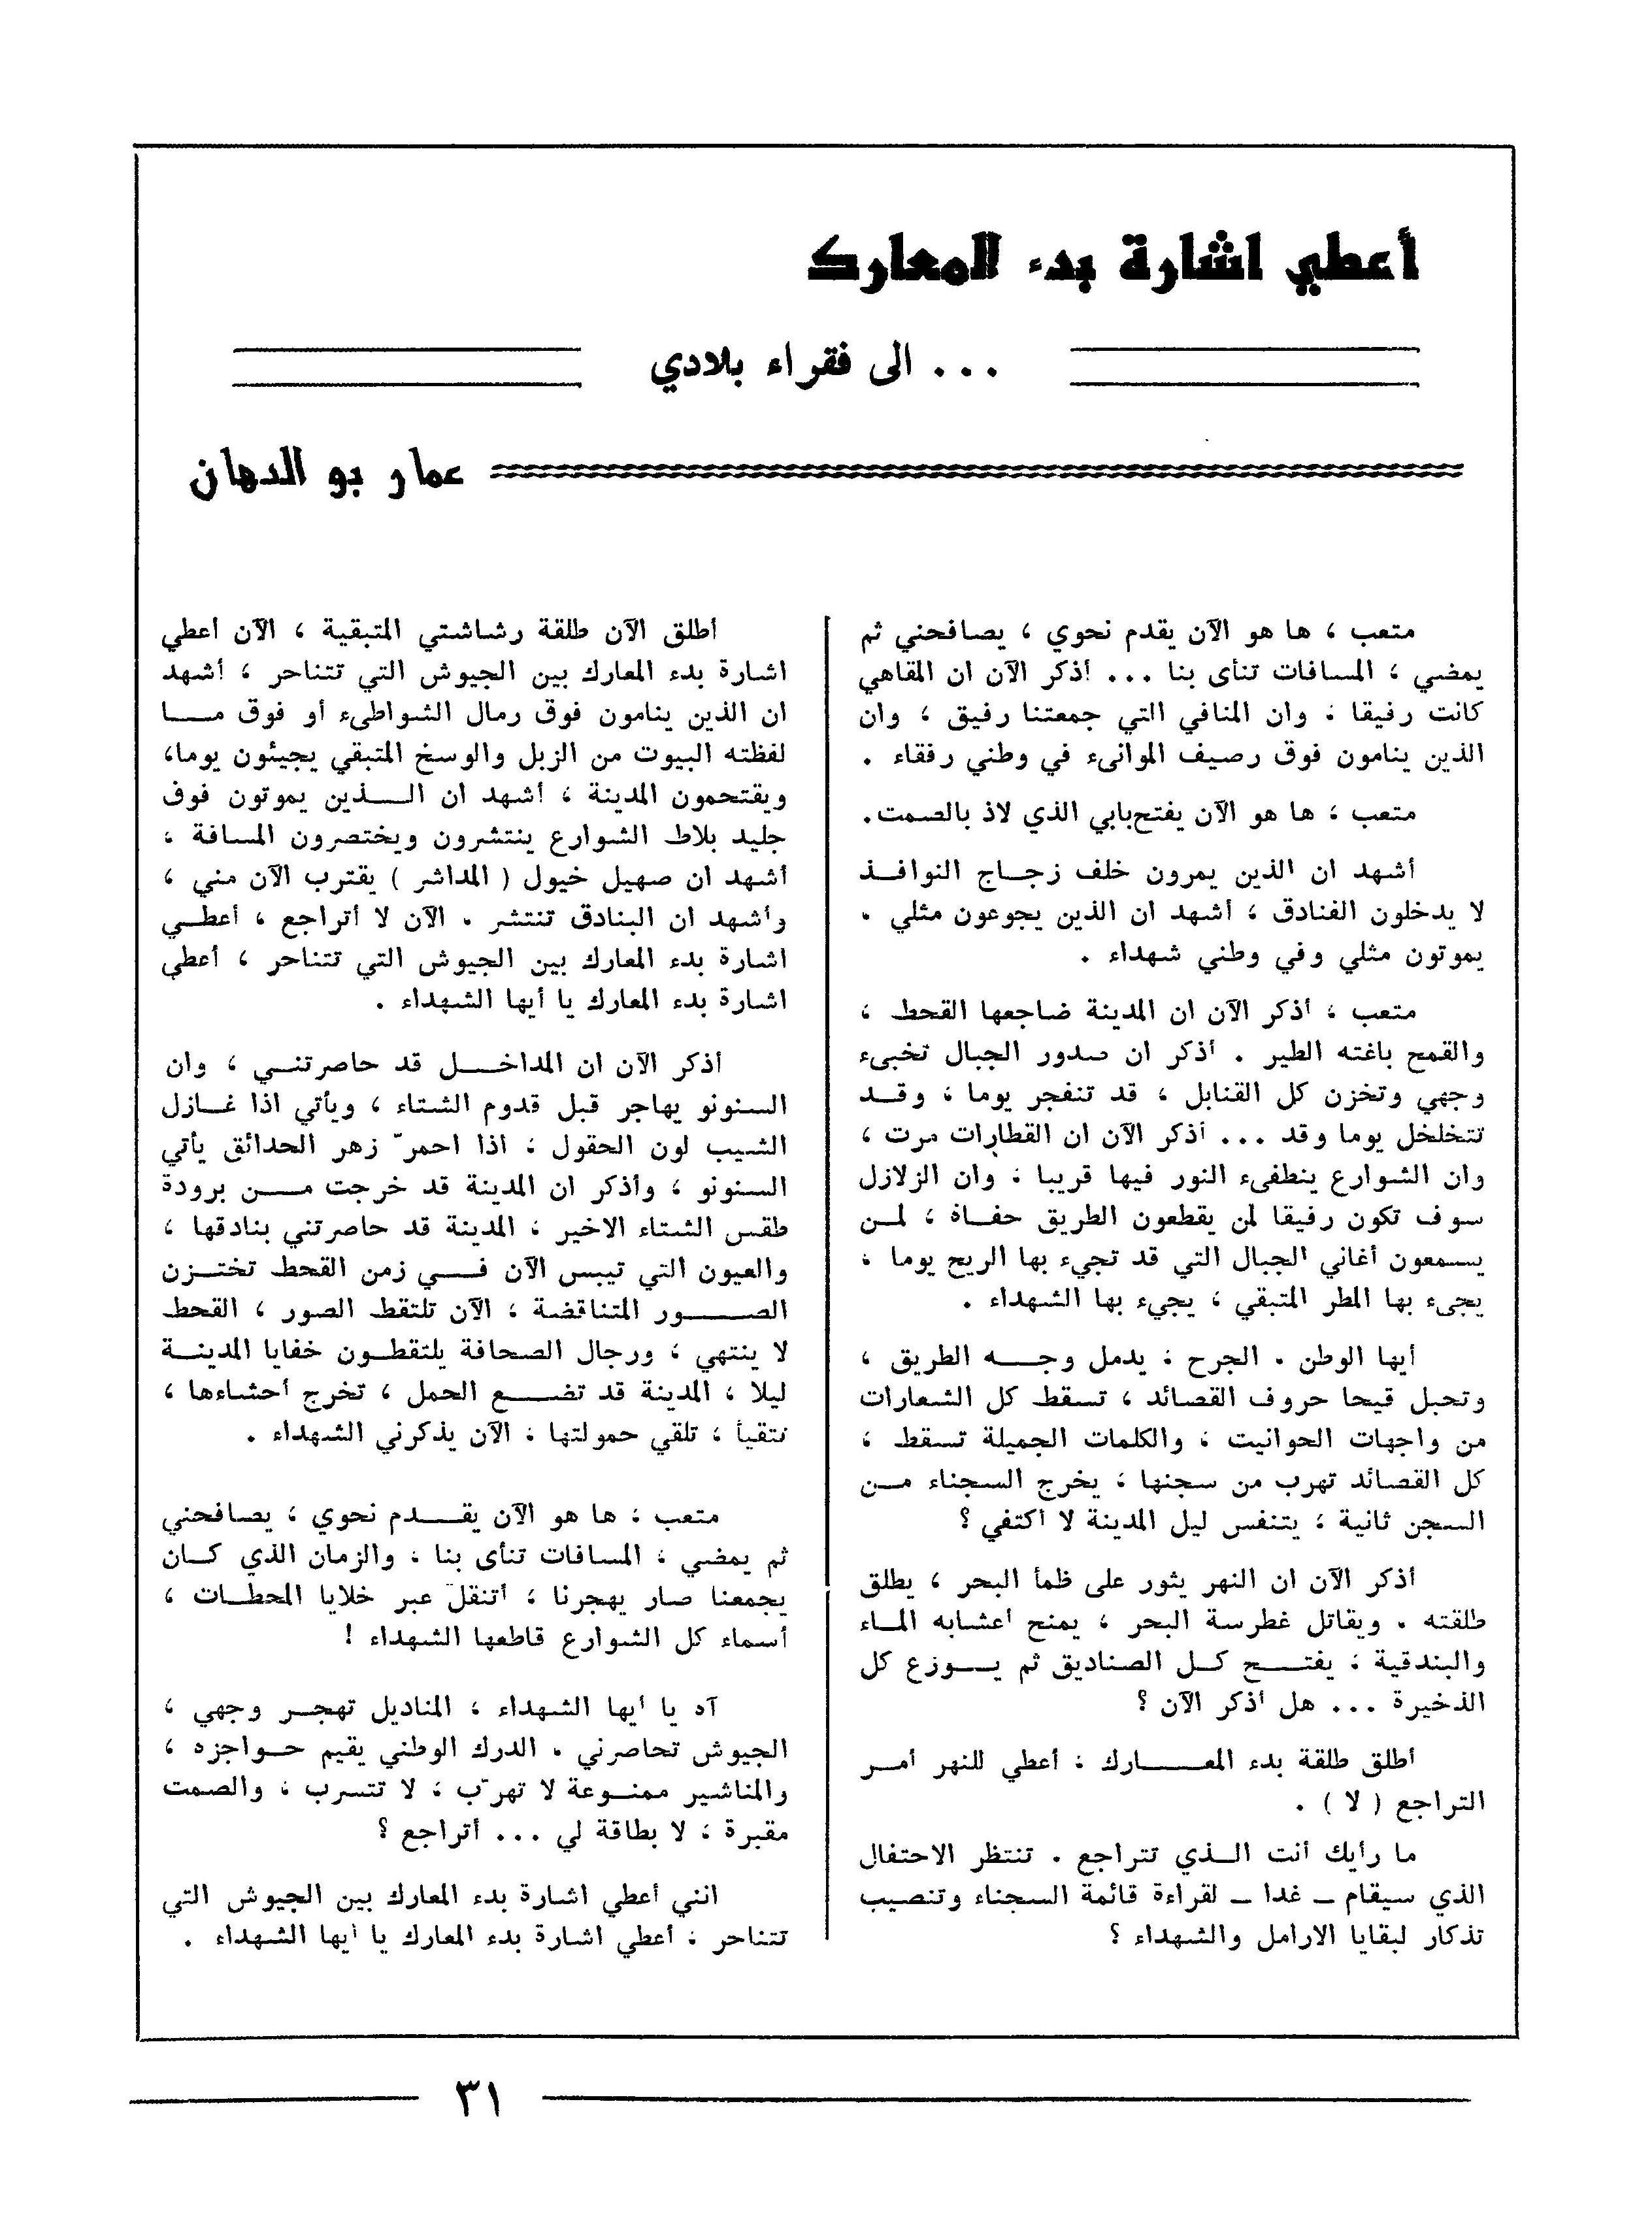 أعطي اشارة بدء المعارك
... الى فقراء بلادي
عمار بو الدهان
متعب ، ها هو الآن يقدم نحوي ، يصافحني ثم
يمضي ، المسافات تنأى بنا ... أذكر الآن ان المقاهي
كانت رفيقا ، وان المنافي التي جمعتنا رفيق ، وان
الذين ينامون فوق رصيف الموانىء في وطني رفقاء .
متعب ، ها هو الآن يفتح بابي الذي لاذ بالصمت .
أشهد ان الذين يمرون خلف زجاج النوافذ
لا يدخلون الفنادق ، أشهد ان الذين يجوعون مثلي .
يموتون مثلي وفي وطني شهداء .
متعب ، أذكر الآن ان المدينة ضاجعها القحط ،
والقمح باغته الطير . أذكر ان صدور الجبال تخبىء
وجهي وتخزن كل القنابل ، قد تنفجر يوما ، وقد
تتخلخل يوما وقد ... أذكر الآن ان القطارات مرت ،
وان الشوارع ينطفىء النور فيها قريبا ، وان الزلازل
سوف تكون رفيقا لمن يقطعون الطريق حفاة ، لمن
يسمعون أغاني الجبال التي قد تجيء بها الريح يوما ،
يجىء بها المطر المتبقي ، يجيء بها الشهداء .
أيها الوطن . الجرح ، يدمل وجه الطريق ،
وتحبل قيحا حروف القصائد ، تسقط كل الشعارات
من واجهات الحوانيت ، والكلمات الجميلة تسقط ،
كل القصائد تهرب من سجنها ، يخرج السجناء من
السجن ثانية ، يتنفس ليل المدينة لا أكتفي ؟
أذكر الآن ان النهر يثور على ظمأ البحر ، يطلق
طلقته . ويقاتل غطرسة البحر ، يمنح أعشابه الماء
والبندقية ، يفتح كل الصناديق ثم يوزع كل
الذخيرة ... هل أذكر الآن ؟
أطلق طلقة بدء المعارك ، أعطي للنهر أمر
التراجع ( لا ) .
ما رأيك أنت الذي تتراجع . تنتظر الاحتفال
الذي سيقام ــ غدا ــ لقراءة قائمة السجناء وتنصيب
تذكار لبقايا الارامل والشهداء ؟
أطلق الآن طلقة رشاشتي المتبقية ، الآن أعطي
اشارة بدء المعارك بين الجيوش التي تتناحر ، أشهد
ان الذين ينامون فوق رمال الشواطىء أو فوق ما
لفظته البيوت من الزبل والوسخ المتبقي يجيئون يوما،
ويقتحمون المدينة ، أشهد ان الذين يموتون فوق
جليد بلاط الشوارع ينتشرون ويختصرون المسافة ،
أشهد ان صهيل خيول ( المداشر ) يقترب الآن مني ،
وأشهد ان البنادق تنتشر . الآن لا أتراجع ، أعطي
اشارة بدء المعارك بين الجيوش التي تتناحر ، أعطي
اشارة بدء المعارك يا أيها الشهداء .
أذكر الآن ان المداخل قد حاصرتني ، وان
السنونو يهاجر قبل قدوم الشتاء ، ويأتي اذا غازل
الشيب لون الحقول ، اذا احمرّ زهر الحدائق يأتي
السنونو ، وأذكر ان المدينة قد خرجت من برودة
طقس الشتاء الاخير ، المدينة قد حاصرتني بنادقها ،
والعيون التي تيبس الآن في زمن القحط تختزن
الصور المتناقضة ، الآن تلتقط الصور ، القحط
لا ينتهي ، ورجال الصحافة يلتقطون خفايا المدينة
ليلا ، المدينة قد تضع الحمل ، تخرج أحشاءها ،
تتقيأ ، تلقي حمولتها ، الآن يذكرني الشهداء .
متعب ، ها هو الآن يقدم نحوي ، يصافحني
ثم يمضي ، المسافات تنأى بنا ، والزمان الذي كان
يجمعنا صار يهجرنا ، أتنقلّ عبر خلايا المحطات ،
أسماء كل الشوارع قاطعها الشهداء !
آه يا أيها الشهداء ، المناديل تهجر وجهي ،
الجيوش تحاصرني . الدرك الوطني يقيم حواجزه ،
والمناشير ممنوعة لا تهرّب ، لا تتسرب ، والصمت
مقبرة ، لا بطاقة لي ... أتراجع ؟
انني أعطي اشارة بدء المعارك بين الجيوش التي
تتناحر ، أعطي اشارة بدء المعارك يا أيها الشهداء .
٣١